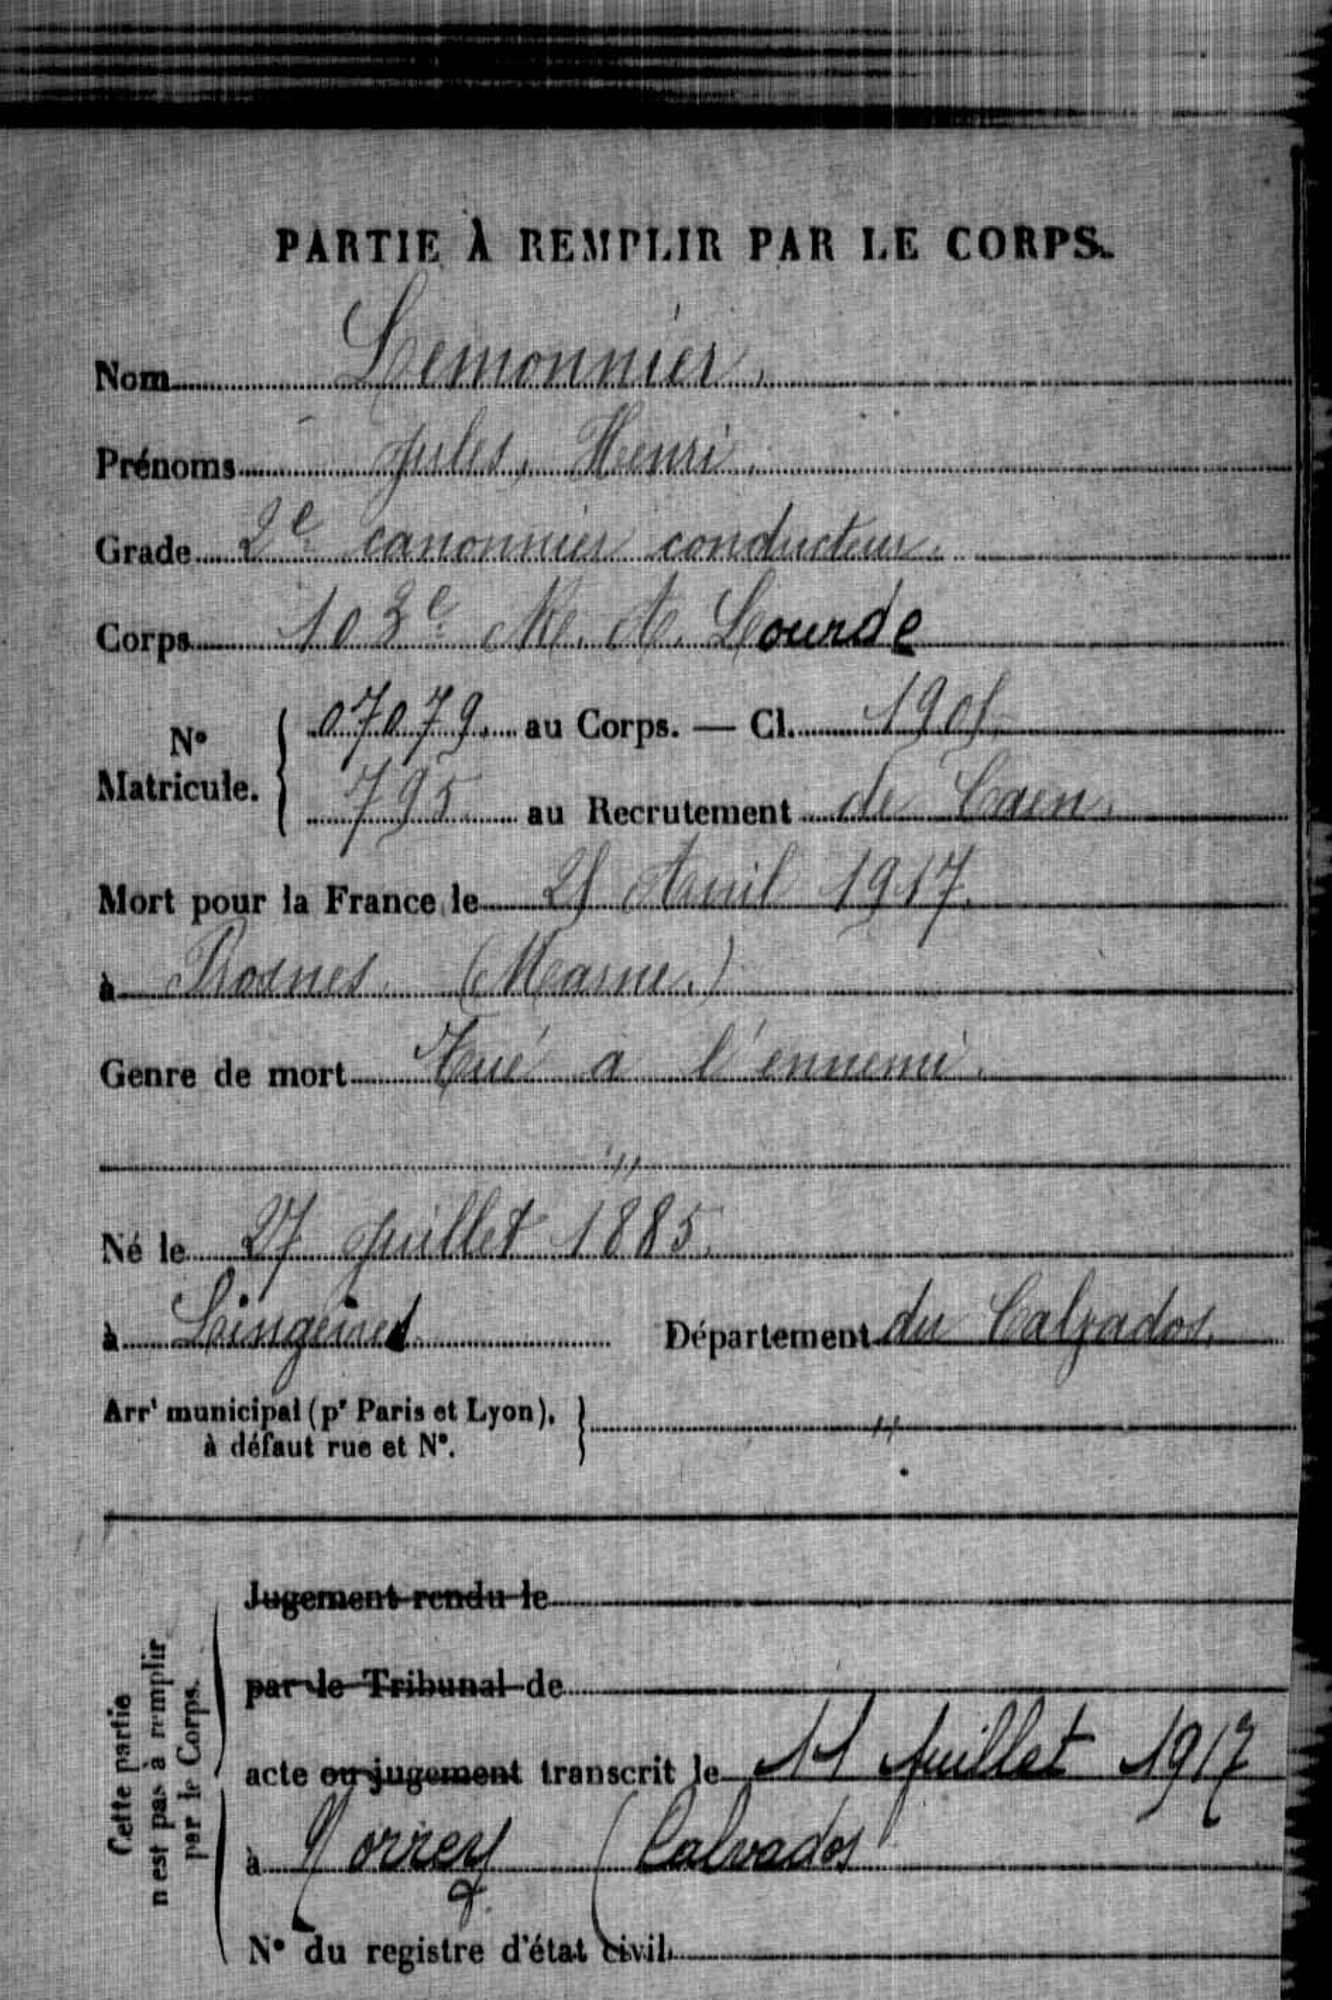 PARTIE À REMPLIR PAR LE CORPS.
Nom Lemonnier.
Prénoms Jules, Henri.
Grade 2e canonnier conducteur.
Corps 103e R. A. Lourde
No Matricule. 07079. au Corps. — Cl. 1905
795 au Recrutement de Caen.
Mort pour la France le 21 Avril 1917.
à Prosnes (Marne.)
Genre de mort Tué à l'ennemi.
"
Né le 27 Juillet 1885.
à Lingèvres Département du Calvados.
Arrt municipal (pr Paris et Lyon),
à défaut rue et No. "
Cette partie
n'est pas à remplir
par le Corps.
Jugement rendu le
par le Tribunal de
acte ou jugement transcrit le 11 Juillet 1917
à Norrey (Calvados
No du registre d'état civil